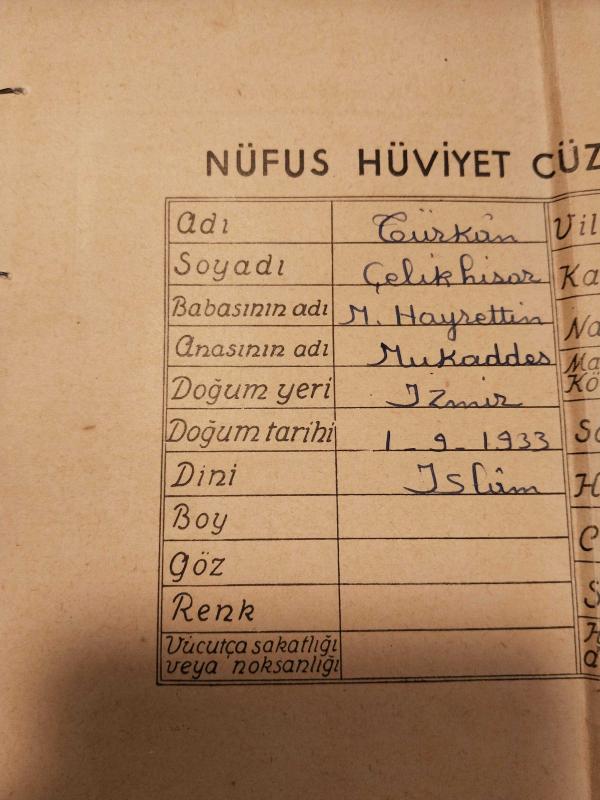 NÜFUS HÜVİYET CÜZ
Adı Türkân Vil
Soyadı Çelikhisar Ka
Babasının adı M. Hayrettin Na
Anasının adı Mukaddes Ma
Kö
Doğum yeri İzmir
Doğum tarihi 1_9_1933 Sa
Dini İslâm H
Boy C
Göz
Renk S
Vücutça sakatlığı H
veya noksanlığı a